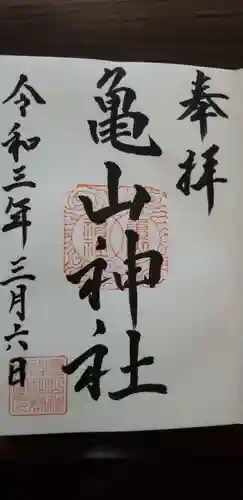 奉拝
亀山神社
令和三年三月六日